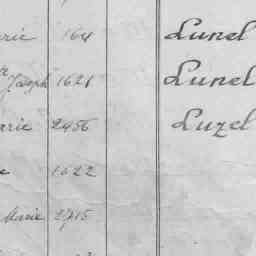 rie 164 Lunel
Joseph 1621 Lunel
arie 2456 Luzel
e 1622
Marie 2715